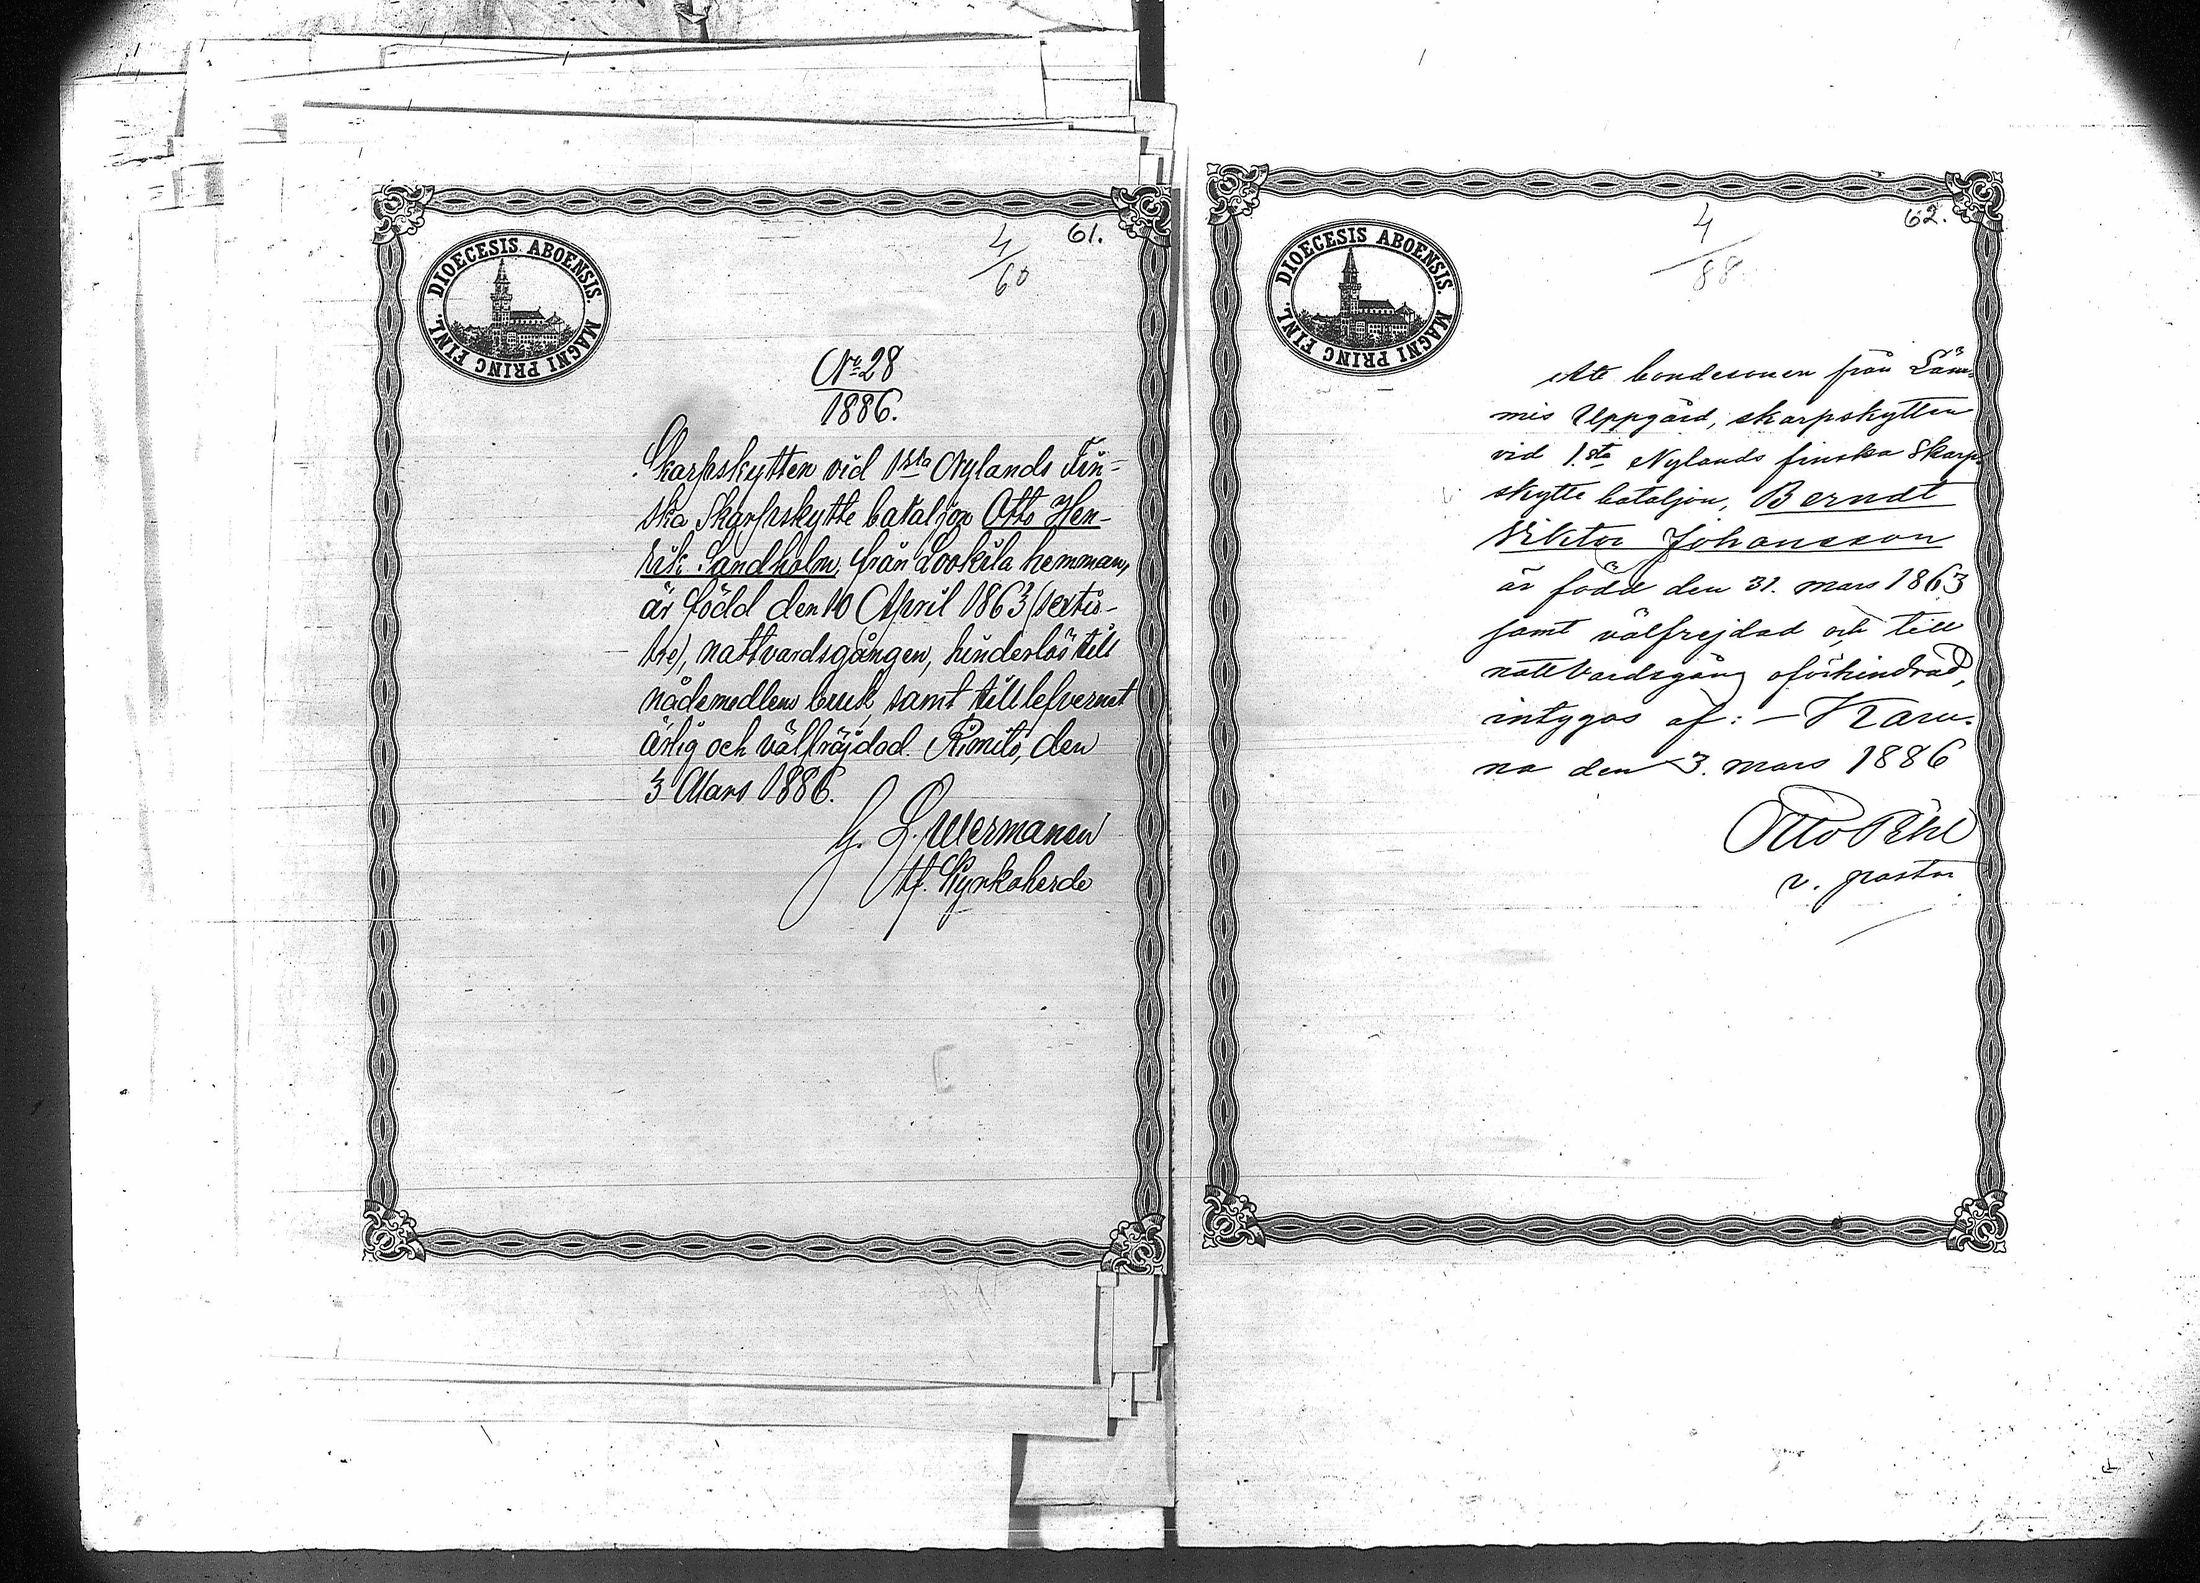 61.
4/60
DIOECESIS ABOENSIS. MAGNI PRINC FINL.
No 28
1886.
Skarpskytten vid 1sta Nylands Fin-
ska Skarpskytte bataljon Otto Hen-
rik Sandholm från Lookila hemman,
är född den 10 April 1863 (sextio-
tre), nattvardsgången, hinderlös till
nådemedlens bruk, samt till lefvernet
ärlig och välfräjdad. Rimito, den
3 Mars 1886.
G. L. Wermanen
tf. Kyrkoherde
62.
4/88
DIOECESIS ABOENSIS. MAGNI PRINC FINL.
Att bondesonen från Läm-
mis Uppgård, skarpskytten
vid 1.sta Nylands finska Skarp-
skytte bataljon, Berndt
Viktor Johansson
är född den 31. mars 1863
samt välfrejdad och till
nattvardsgång oförhindrad,
intygas af: — Karu-
na den 3. mars 1886
Otto
v. pastor